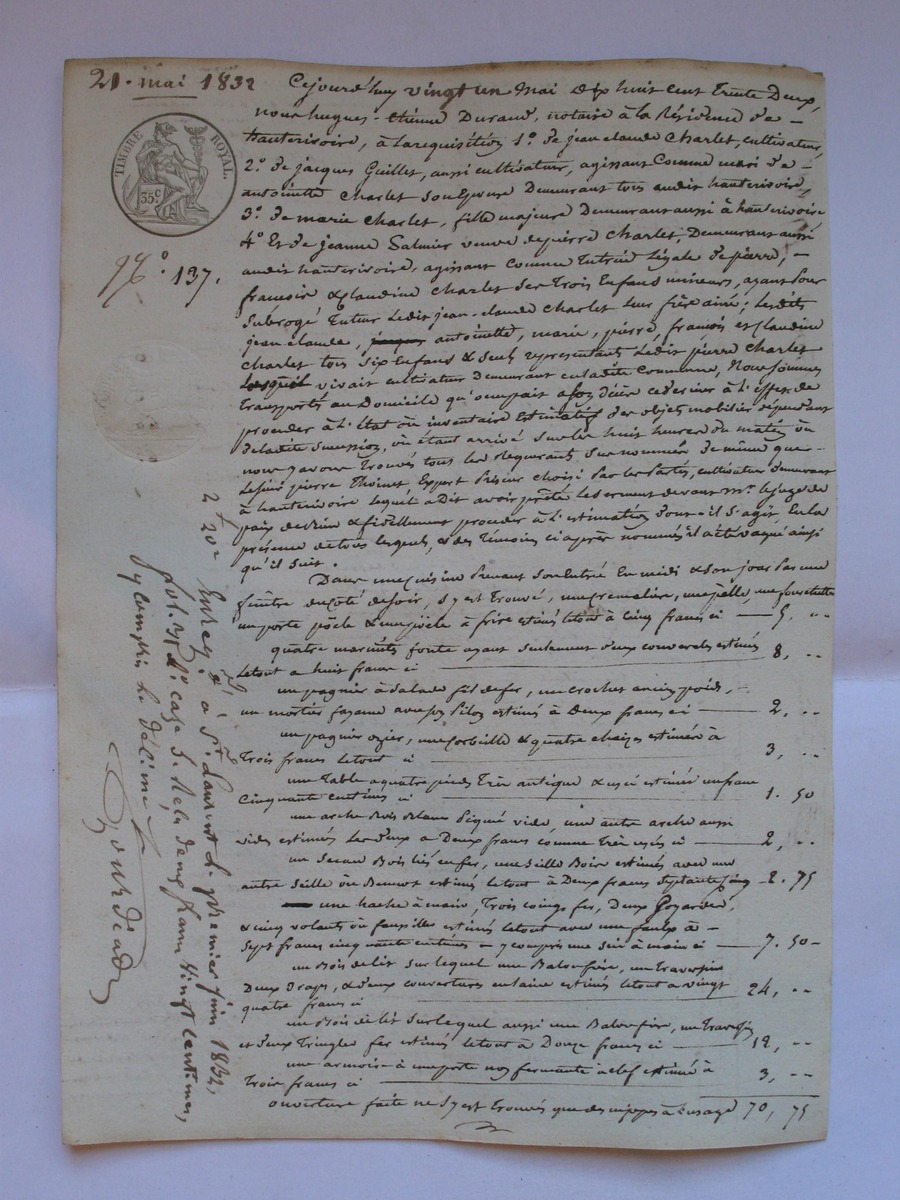 21. mai 1832
TIMBRE ROYAL.
35 C.
N° 137.
Cejourd'huy vingt un Mai dix huit cent trente Deux,
nous hugues-Etienne Durand, notaire à la Résidence de
hauterivoire, à la requisition 1° de jean claude Charlet, cultivateur,
2° de jacques Guillet, aussi cultivateur, agissant Comme mari de
antoinette Charlet son Epouse Demeurant tous audit hauterivoire,
3° de marie Charlet, fille majeure Demeurant aussi à hauterivoire
4° Et de jeanne Salmier veuve de pierre Charlet, Demeurant aussi
audit hauterivoire, agissant comme tutrice légale de pierre,
francois & Claudine Charlet ses trois Enfans mineurs, ayant pour
Subrogé tuteur ledit jean-claude Charlet leur frère ainé; lesdits
jean claude, antoinette, marie, pierre, francois et Claudine
Charlet tous six Enfans & seuls représentants dudit pierre Charlet
Lorsquil vivait cultivateur demeurant en ladite Commune, Nous sommes
transportés au Domicile qu'occupait à son décès ce dernier à l'effet de
procéder à l'état ou inventaire Estimatif des objets mobiliers dépendant
de ladite succession, où étant arrivé sur les huit heures du matin où
nous y avons trouvés tous les requerants sus nommés de même que
le sieur pierre Thoinet Expert priseur choisi par les parties, cultivateur demeurant
à hauterivoire lequel a dit avoir prêté le serment devant Mr. le juge de
paix de bien & fidellement procéder à l'estimation dont il s'agit, En la
présence de tous lesquels, & des témoins ci après nommés il a été vaqué ainsi
qu'il suit.
Dans une cuisine prenant son Entrée En midi & son jour par une
fenêtre du côté de soir, s'y est trouvé, une cremalière, une pelle, une fourchette
un porte poële & une poële à frire estimés le tout à Cinq francs ci — 5, "
quatre marmites fonte ayant seulement deux couvercles estimés
le tout a huit francs ci — 8, "
un pagnier à Salade fil de fer, un crochet ancien poids,
un mortier fayance avec son pilon estimés à Deux francs ci — 2, "
un pagnier ozier, une Corbeille & quatre chaizes estimées à
Trois francs le tout ci — 3, "
une Table a quatre pieds très antique & usée estimée un franc
Cinquante centimes ci — 1. 50
une arche Bois blanc piqué vide, une autre arche aussi
vides estimées les deux a Deux francs comme très usés ci — 2, "
un seau Bois liés en fer, une seille Boire estimés avec une
autre seille ou Bennot estimés le tout à Deux francs septante cinq — 2. 75
une hache à main, Trois coings fer, Deux Goyardes,
& cinq volants ou faucilles estimés le tout avec une faulx à
Sept francs cinquante centimes — y compris une scie à main ci — 7. 50
un Bois de lit sur lequel une Balouffière, un traversin
Deux Draps, & deux couvertures en laine estimés le tout a vingt
quatre francs ci — 24, "
un Bois de lit sur lequel aussi une Balouffière, un traversin
et deux Tringles fer estimés le tout à Douze francs ci — 12, "
une armoire à une porte non fermante à clef estimée à
Trois francs ci — 3, "
ouverture faite ne s'y est trouvés que des nippes à l'usage 70, 75
2 f 20 c
Enreg. à St. Laurent le premier juin 1832,
fol. case 5. Reçu deux francs vingt centimes,
y compris le décime